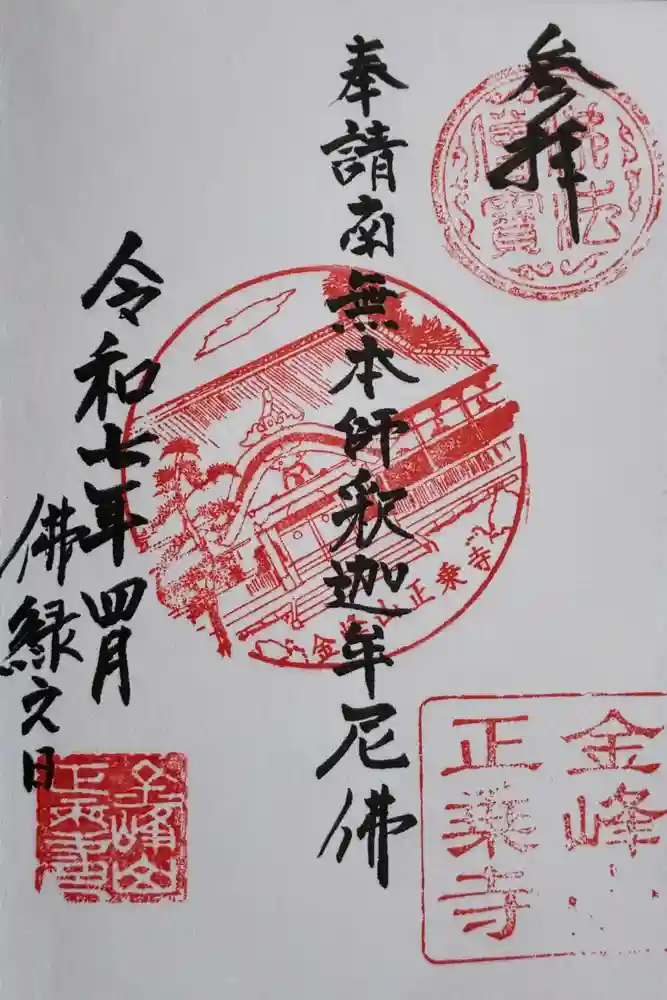 参拝
佛法
僧寶
奉請南無本師釈迦牟尼佛
金峰山正乗寺
令和七年四月
佛縁之日
金峰山
正乗寺
金峰山
正乗寺